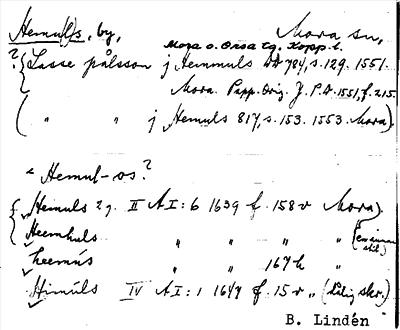 Hemul(l)s, by, Mora sn,
Mora o. Orsa tg, Kopp. l.
? Lasse pålsson j Hemmuls DA 784, s. 129. 1551.
Mora. Papp. Orig. J. P. A. 1551, f. 215.
( " " j Hemuls 817, s. 153. 1553. Mora).
< Hemul-os?
Hemuls 2 j. II AI: 6 1639 f. 158 v Mora).
Heemhuls " " "
heemüs " " 167 h "
Himüls IV AI: 1 1647 f. 15 v " (dålig skr.)
B. Lindén